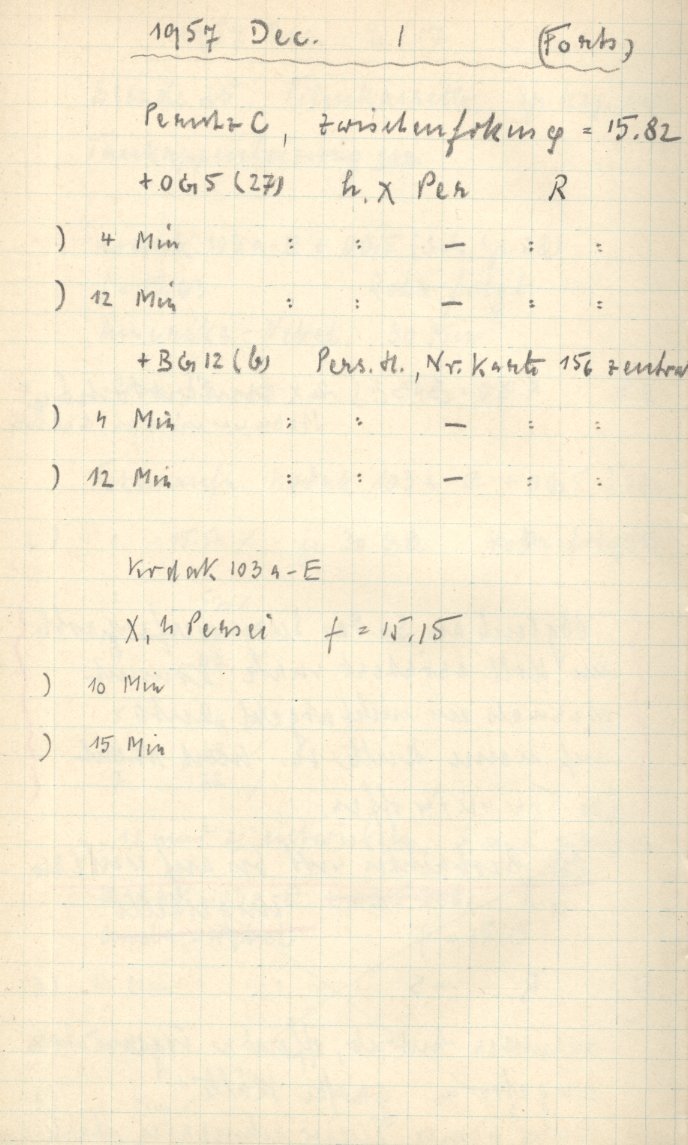 1957 Dec. 1 (Forts)
Perutz C, Zwischenfokus φ = 15.82
+ OG5 (27) h, χ Per R
) 4 Min : : — : :
) 12 Min : : — : :
+ BG12 (6) Pers. H., Nr. Karte 156 zentra
) 4 Min : : — : :
) 12 Min : : — : :
Kodak 103a-E
χ, h Persei f = 15.15
) 10 Min
) 15 Min